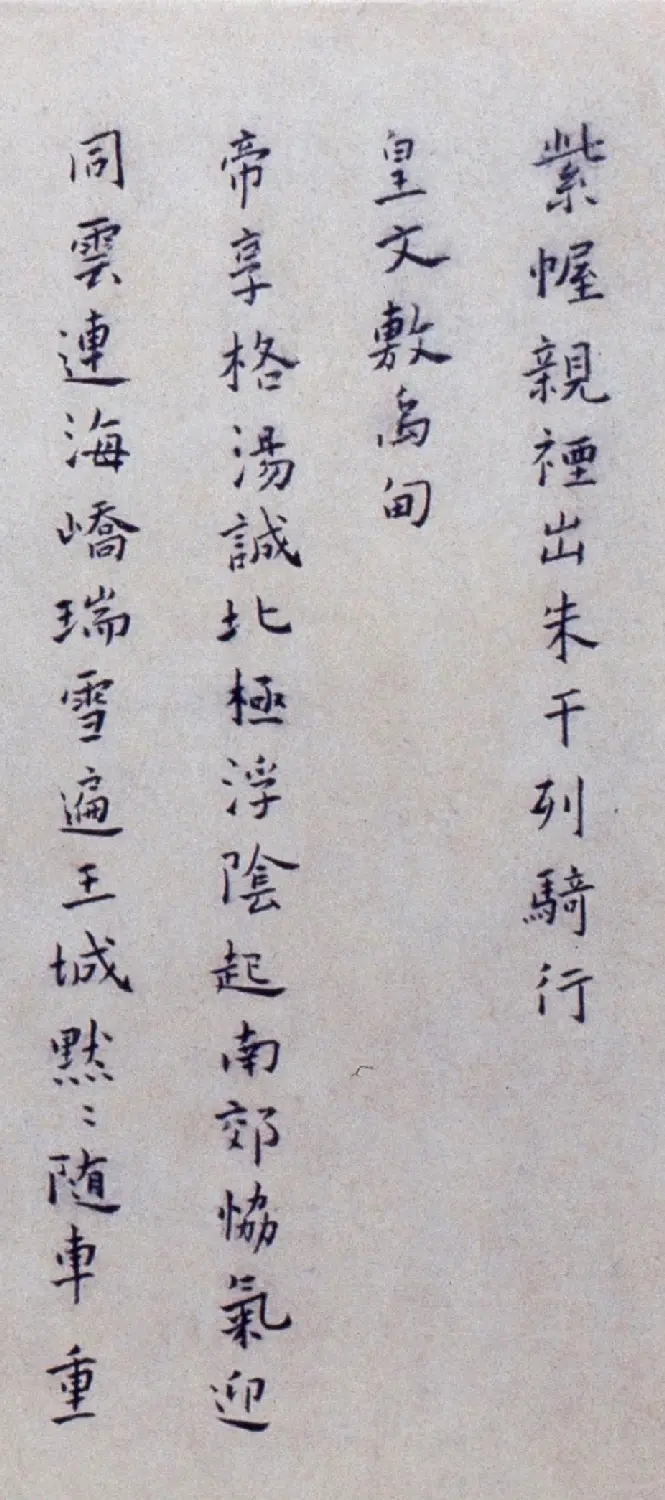 紫幄親禋出朱干列騎行
皇文敷禹甸
帝享格湯誠北極浮陰起南郊恊氣迎
同雲連海嶠瑞雪遍王城黙〻随車重